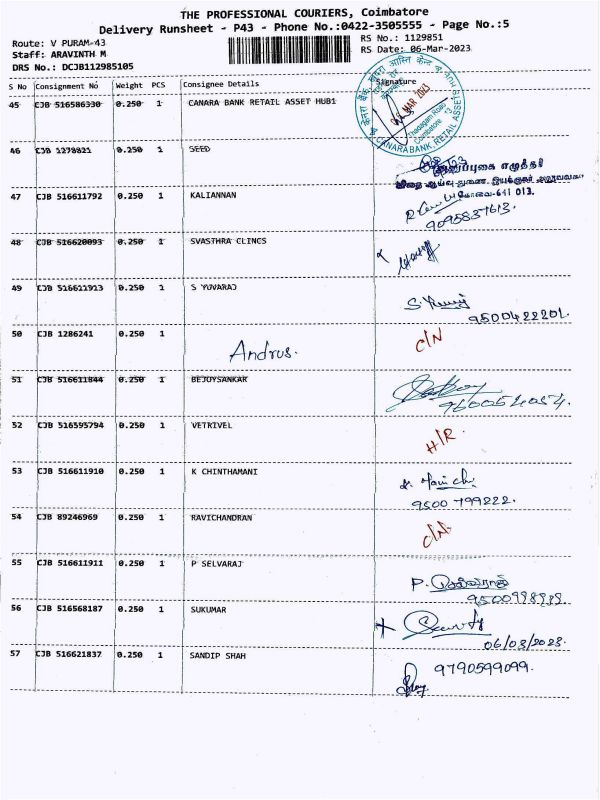 THE PROFESSIONAL COURIERS, Coimbatore
Delivery Runsheet - P43 - Phone No.:0422-3505555 - Page No.:5
Route: V PURAM-43
RS No.: 1129851
Staff: ARAVINTH M
RS Date: 06-Mar-2023
DRS No.: DCJB112985105
S No Consignment No Weight PCS Consignee Details Signature
45 CJB 516586330 0.250 1 CANARA BANK RETAIL ASSET HUB1
MAR 2023
Thadagam Road
Coimbatore
CANARA BANK RETAIL ASSET
46 CJB 1278821 0.250 1 SEED
47 CJB 516611792 0.250 1 KALIANNAN
கோவை-641 013.
9095837613.
48 CJB 516620093 0.250 1 SVASTHRA CLINCS
49 CJB 516611913 0.250 1 S YUVARAJ
9500422201.
50 CJB 1286241 0.250 1
Andrus.
C/N
51 CJB 516611844 0.250 1 BEJOYSANKAR
9600054054.
52 CJB 516595794 0.250 1 VETRIVEL
H/R.
53 CJB 516611910 0.250 1 K CHINTHAMANI
9500799222.
54 CJB 89246969 0.250 1 RAVICHANDRAN
C/N
55 CJB 516611911 0.250 1 P SELVARAJ
P. செல்வராஜ்
56 CJB 516568187 0.250 1 SUKUMAR
Security
06/03/2023.
57 CJB 516621837 0.250 1 SANDIP SHAH
9790599099.